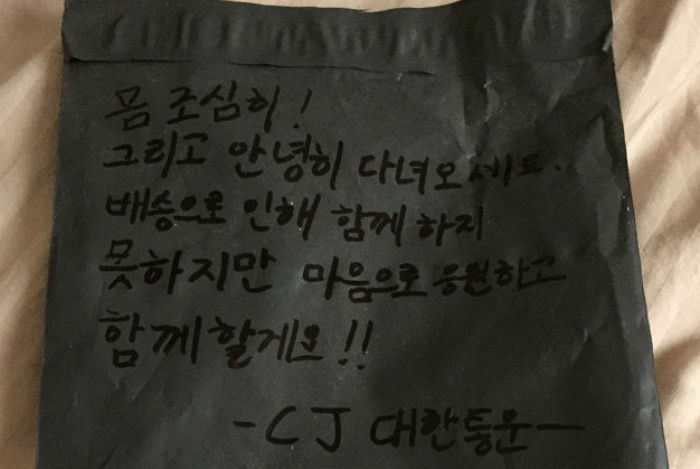 몸 조심히!
그리고 안녕히 다녀오세요..
배송으로 인해 함께 하지
못하지만 마음으로 응원하고
함께 할게요!!
-CJ 대한통운-